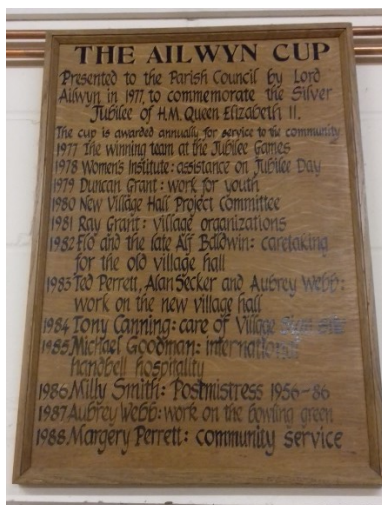 THE AILWYN CUP
Presented to the Parish Council by Lord
Ailwyn in 1977, to commemorate the Silver
Jubilee of H.M. Queen Elizabeth II.
The cup is awarded annually for service to the community
1977 The winning team at the Jubilee Games
1978 Women's Institute: assistance on Jubilee Day
1979 Duncan Grant: work for youth
1980 New Village Hall Project Committee
1981 Ray Grant: village organizations
1982 Flo and the late Alf Baldwin: caretaking
for the old village hall
1983 Ted Perrett, Alan Secker and Aubrey Webb:
work on the new village hall
1984 Tony Canning: care of Village
1985 Michael Goodman: international
handbell hospitality
1986 Milly Smith: Postmistress 1956-86
1987 Aubrey Webb: work on the bowling green
1988 Margery Perrett: community service